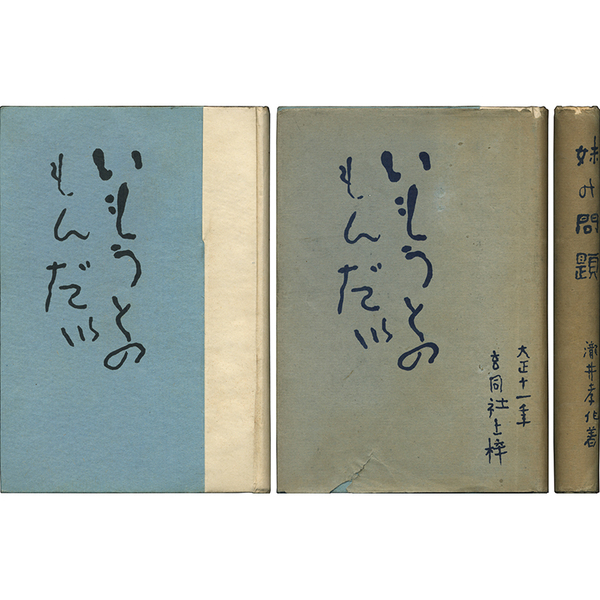 いもうとの
もんだい
いもうとの
もんだい
大正十一年
玄同社上梓
妹の問題
瀧井孝作著